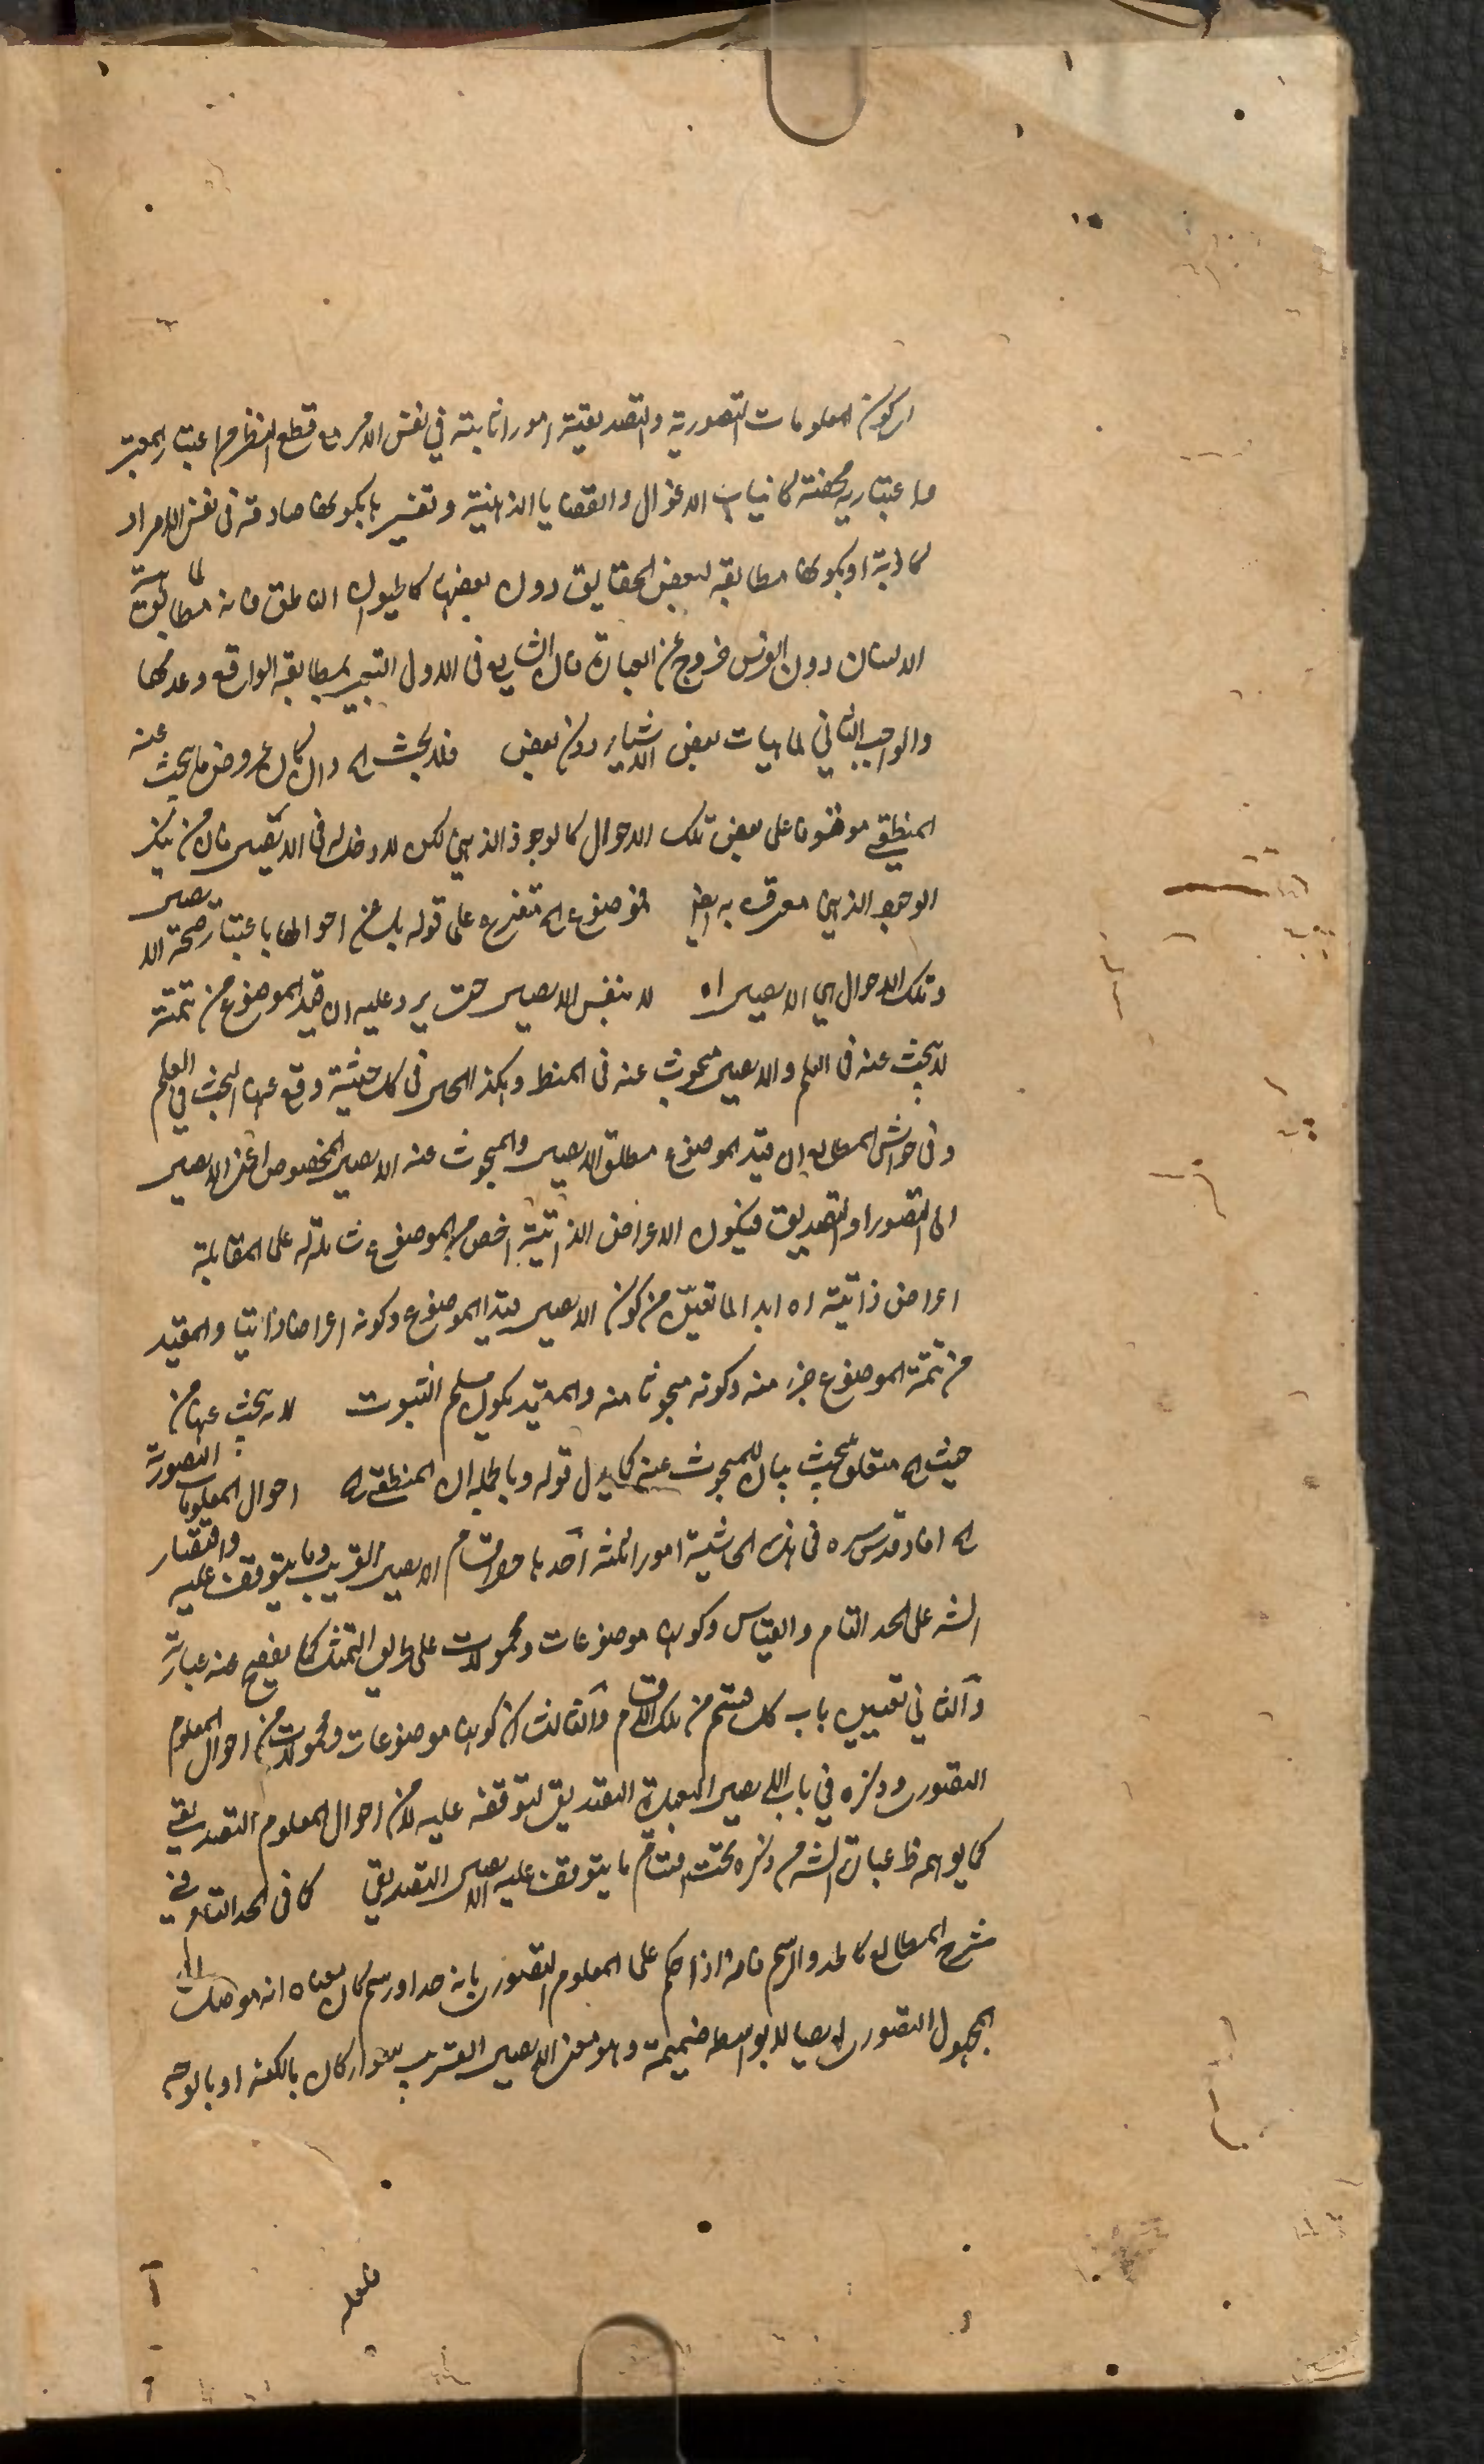 اى كون المعلومات التصورية والتصديقية امورا ثابتة في نفس الامر مع قطع النظر عن اعتبار المعتبر
او اعتبارية محضة كانياب الاغوال والقضايا الذهنية وتفسيرها بكونها صادقة فى نفس الامر او
كاذبة او بكونها مطابقة لبعض الحقايق دون بعضها كالحيوان الناطق فانه مطابق لماهية
الانسان دون الفرس خروج عن العبارة فان الشايع فى الاول التعبير بمطابقة الواقع وعدمها
والواجب الثاني لماهيات بعض الاشياء دون بعض فلا يبحث اه وان كان عروض ما يبحث عنه
المنطقي موقوفا على بعض تلك الاحوال كالوجود الذهني لكن لا دخل له فى الايصال فان من ينكر
الوجود الذهني معترف به ايضا فموضوع اه متفرع على قوله بل عن احوالها باعتبار صحة الايصال
وتلك الاحوال هي الايصال اه لا بنفس الايصال حتى يرد عليه ان قيد الموضوع من تتمته
لا يبحث عنه فى العلم والايصال مبحوث عنه فى المنطق وهكذا الحال فى كل حيثية وقع عنها البحث في العلم
وفى حواشى المطالع ان قيد الموضوع مطلق الايصال والمبحوث عنه الايصال المخصوص اعنى الايصال
الى التصور او التصديق فيكون الاعراض الذاتية اخص من الموضوع شاملة له على المقابلة
اعراض ذاتية اه ابدا لما تعين من كون الايصال قيد الموضوع وكونه اعراضا ذاتيا والمقيد
من تتمة الموضوع جزء منه وكونه مبحوثا عنه والمقيد يكون مسلم الثبوت لا يبحث عنها من
حيث اه متعلق بيبحث بيان للمبحوث عنه كما يدل قوله وبالجملة ان المنطقي اه احوال المعلومات التصورية
اه افاد قدس سره فى هذه الحاشية امورا ثلثة احدها حصر اقسام الايصال القريب وما يتوقف عليه واقتصار
الشه على الحد التام والقياس وكونها موضوعات ومحمولات على طريق التمثيل كما يفصح عنه عبارة
والثاني تعيين باب كل قسم من تلك الاقسام والثالث ان كونها موضوعات ومحمولات من احوال المعلوم
التصورى وذكره في باب الايصال البعيد الى التصديق لتوقفه عليه لا من احوال المعلوم التصديقي
كما يوهم ظ عبارة الشه من ذكره تحت اقسام ما يتوقف عليه الايصال التصديقي كما فى الحد التام وفي
شرح المطالع كالحد والرسم فانه اذا حكم على المعلوم التصورى بانه حد او رسم كان معناه انه موصل الى
المجهول التصورى ايصالا بلا واسطة ضميمة وهو معنى الايصال القريب سواء كان بالكنه او بالوجه